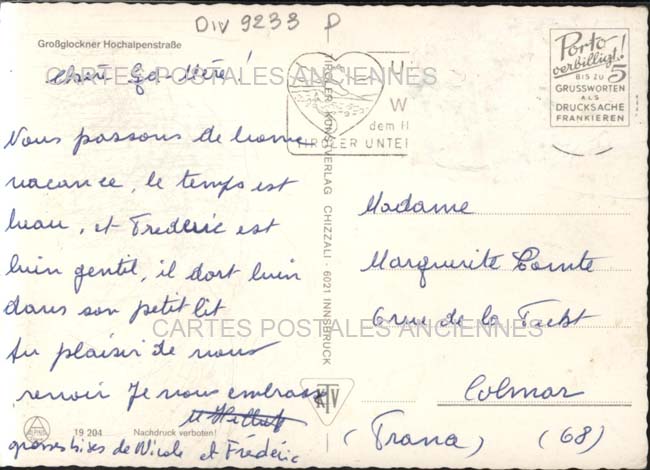 DIV 9233 P
Großglockner Hochalpenstraße
chère
CARTES POSTALES ANCIENNES
Nous passons de bonne
vacance, le temps est
beau, et Frédéric est
bien gentil, il dort bien
dans son petit lit
Au plaisir de vous
revoir Je vous embrasse
grosses bises de Nicole et Frédéric
19 204
Nachdruck verboten!
TIROLER KUNSTVERLAG CHIZZALI · 6021 INNSBRUCK
KTV
dem H
TIROLER UNTER
Porto
verbilligt!
5
BIS ZU
GRUSSWORTEN
ALS
DRUCKSACHE
FRANKIEREN
Madame
Marguerite Comte
6 rue de la
CARTES POSTALES ANCIENNES
Colmar
(France) (68)